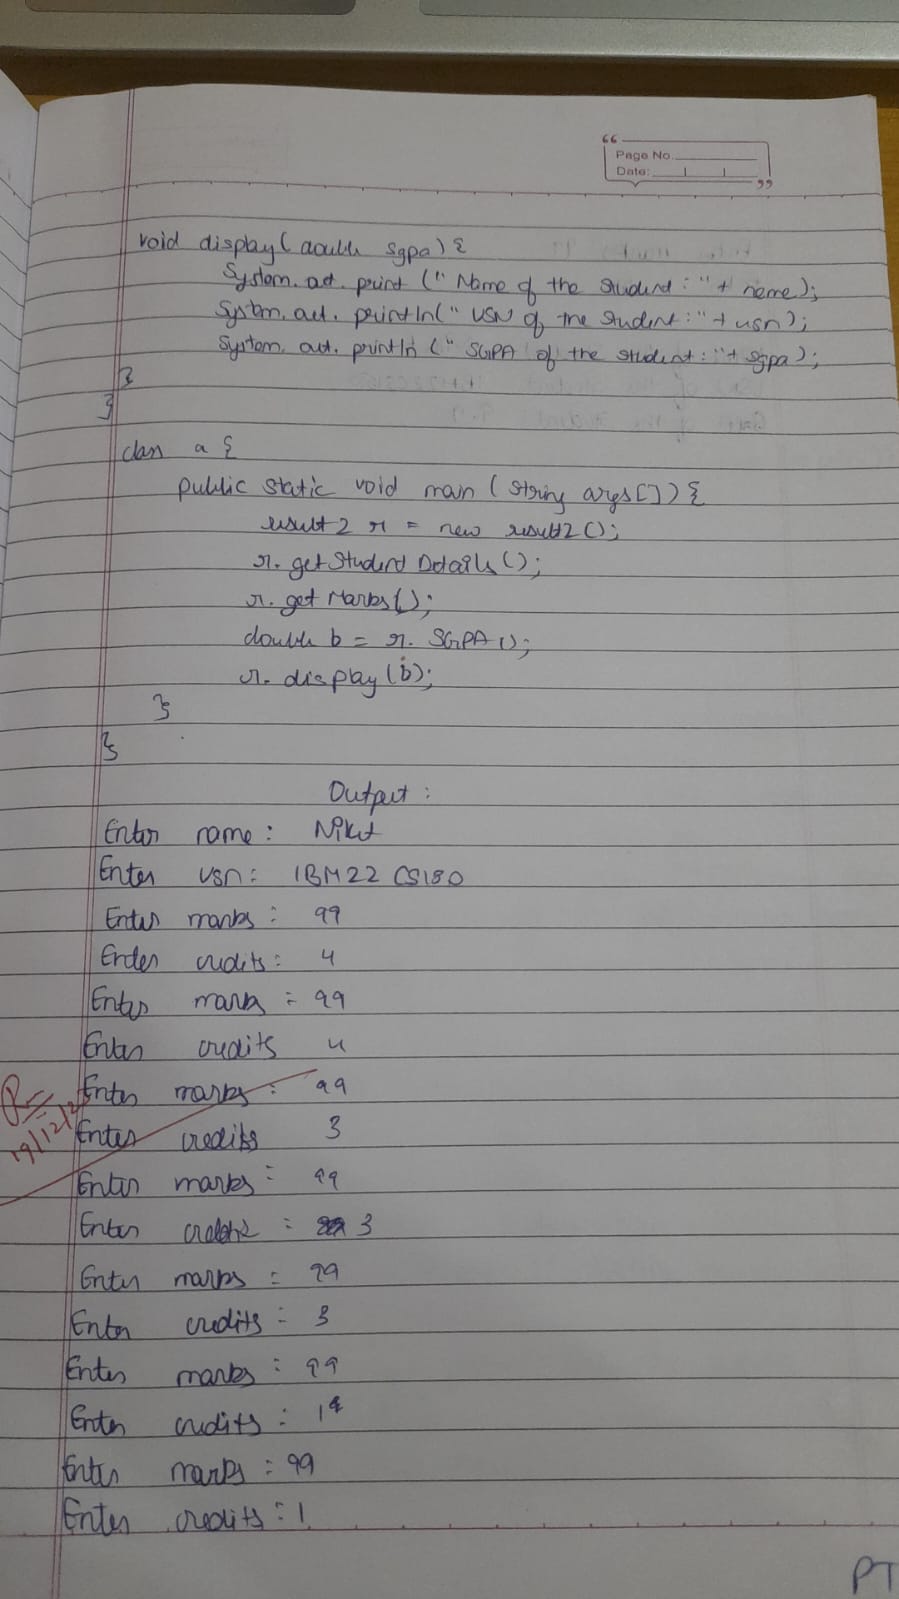 Page No.
Date:
void display(double sgpa){
System.out.print("Name of the student:"+ name);
System.out.println("USN of the student:"+usn);
System.out.println("SGPA of the student:"+sgpa);
}
}
class a {
public static void main(String args[]){
result2 r = new result2();
r.getStudentDetails();
r.getMarks();
double b = r.SGPA();
r.display(b);
}
}
Output:
Enter name: Nikit
Enter usn: 1BM22 CS180
Enter marks: 99
Enter credits: 4
Enter marks: 99
Enter credits 4
Enter marks: 99
19/12/23
Enter credits 3
Enter marks: 99
Enter credits: 3
Enter marks: 99
Enter credits: 3
Enter marks: 99
Enter credits: 1
Enter marks: 99
Enter credits: 1
PT